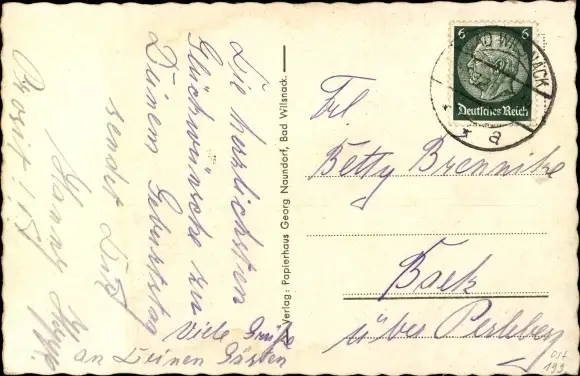 Die herzlichsten
Glückwünsche zu
Deinem Geburtstag
sendet Dir
Hanny
Prosit!
Viele Grüße
an Deinen Gästen
Verlag: Papierhaus Georg Naundorf, Bad Wilsnack.
6 6
Deutsches Reich
WILSNACK
a
Frl
Betty Brennike
Baek
über Perleberg